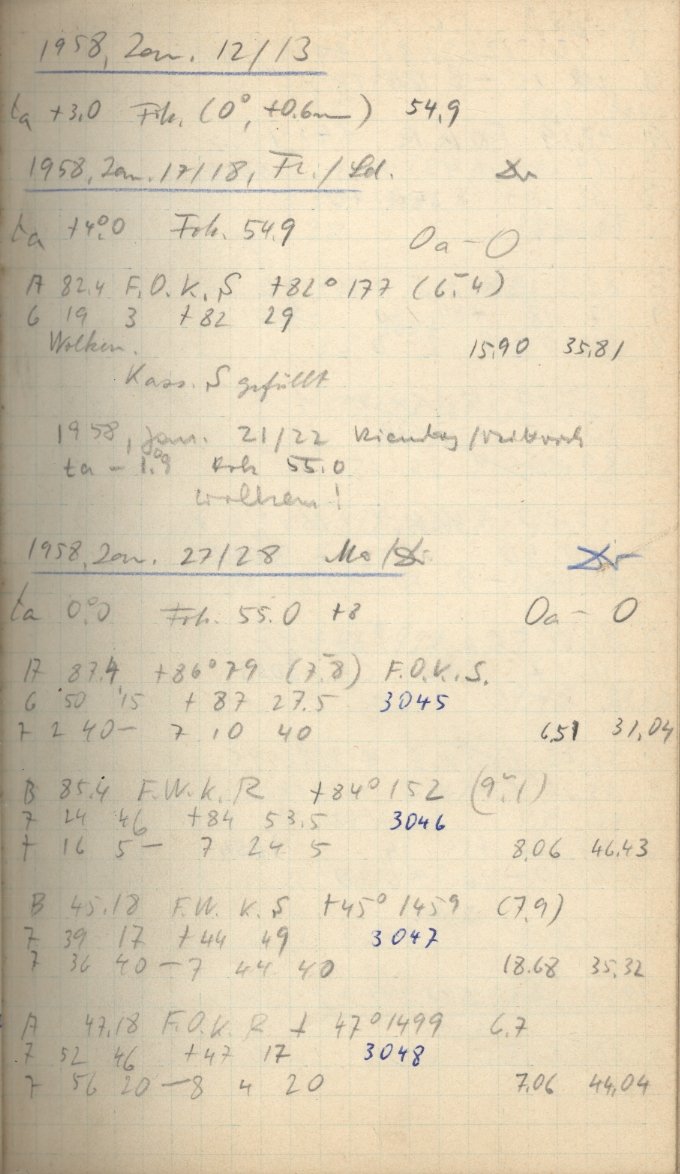 1958, Jan. 12/13
ta +3.0 Fok. (0°, +0.6mm) 54.9
1958, Jan. 17/18, Fr./Sd.
ta +4°.0 Fok. 54.9 Oa-O
A 82.4 F.O.K.S +82°177 (6.m4)
6 19 3 +82 29
Wolken. 15.90 35.81
Kass. S gefüllt
1958, Jan. 21/22 Dienstag/Mittwoch
ta -1.°9 Fok 55.0
wolken!
1958, Jan. 27/28 Mo/
ta 0°.0 Fok. 55.0 +8 Oa- O
A 87.4 +86°79 (7.m8) F.O.K.S.
6 50 15 +87 27.5 3045
7 2 40- 7 10 40 6.51 31.04
B 85.4 F.W.K.R +84°152 (9.m1)
7 24 46 +84 53.5 3046
7 16 5- 7 24 5 8.06 46.43
B 45.18 F.W.K.S +45°1459 (7.9)
7 39 17 +44 49 3047
7 36 40-7 44 40 18.68 35.32
A 47.18 F.O.K.R + 47°1499 6.7
7 52 46 +47 17 3048
7 56 20-8 4 20 7.06 44.04